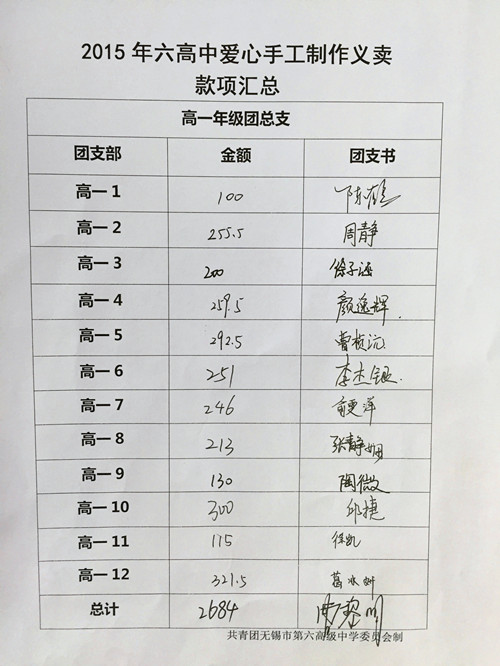 2015年六高中爱心手工制作义卖
款项汇总
高一年级团总支
团支部 金额 团支书
高一1 100
高一2 255.5 周静
高一3 200 徐子涵
高一4 259.5 颜逸辉
高一5 292.5 曹桢沅
高一6 251 李杰银
高一7 246
高一8 213 张静姻
高一9 130 陶微
高一10 300 邱捷
高一11 115 徐凯
高一12 321.5 葛冰钏
总计 2684
共青团无锡市第六高级中学委员会制